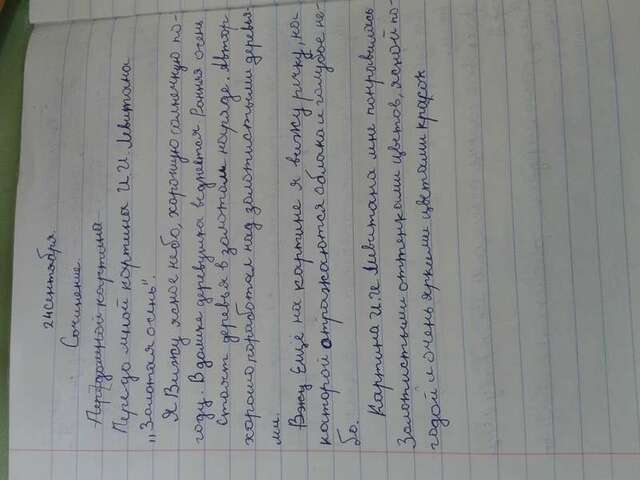 24 сентября.
Сочинение.
Передомной картина
Передо мной картина И.И Левитана
„Золотая осень".
Я Вижу ясное небо, хорошую солнечную по-
году. В далике деревушка веднается Ранняя осень
Стоят деревья в золотом наряде. Автор
хорошо поработал над золотистыми деревья-
ми.
Вжу Ещё на картине я вижу речку, на
каторой отражаются облака и голубое не-
бо.
Картина И.И Левитана мне понравилась
Золотистыми оттенками цветов, ясной по-
годой и очень яркими цветами красок